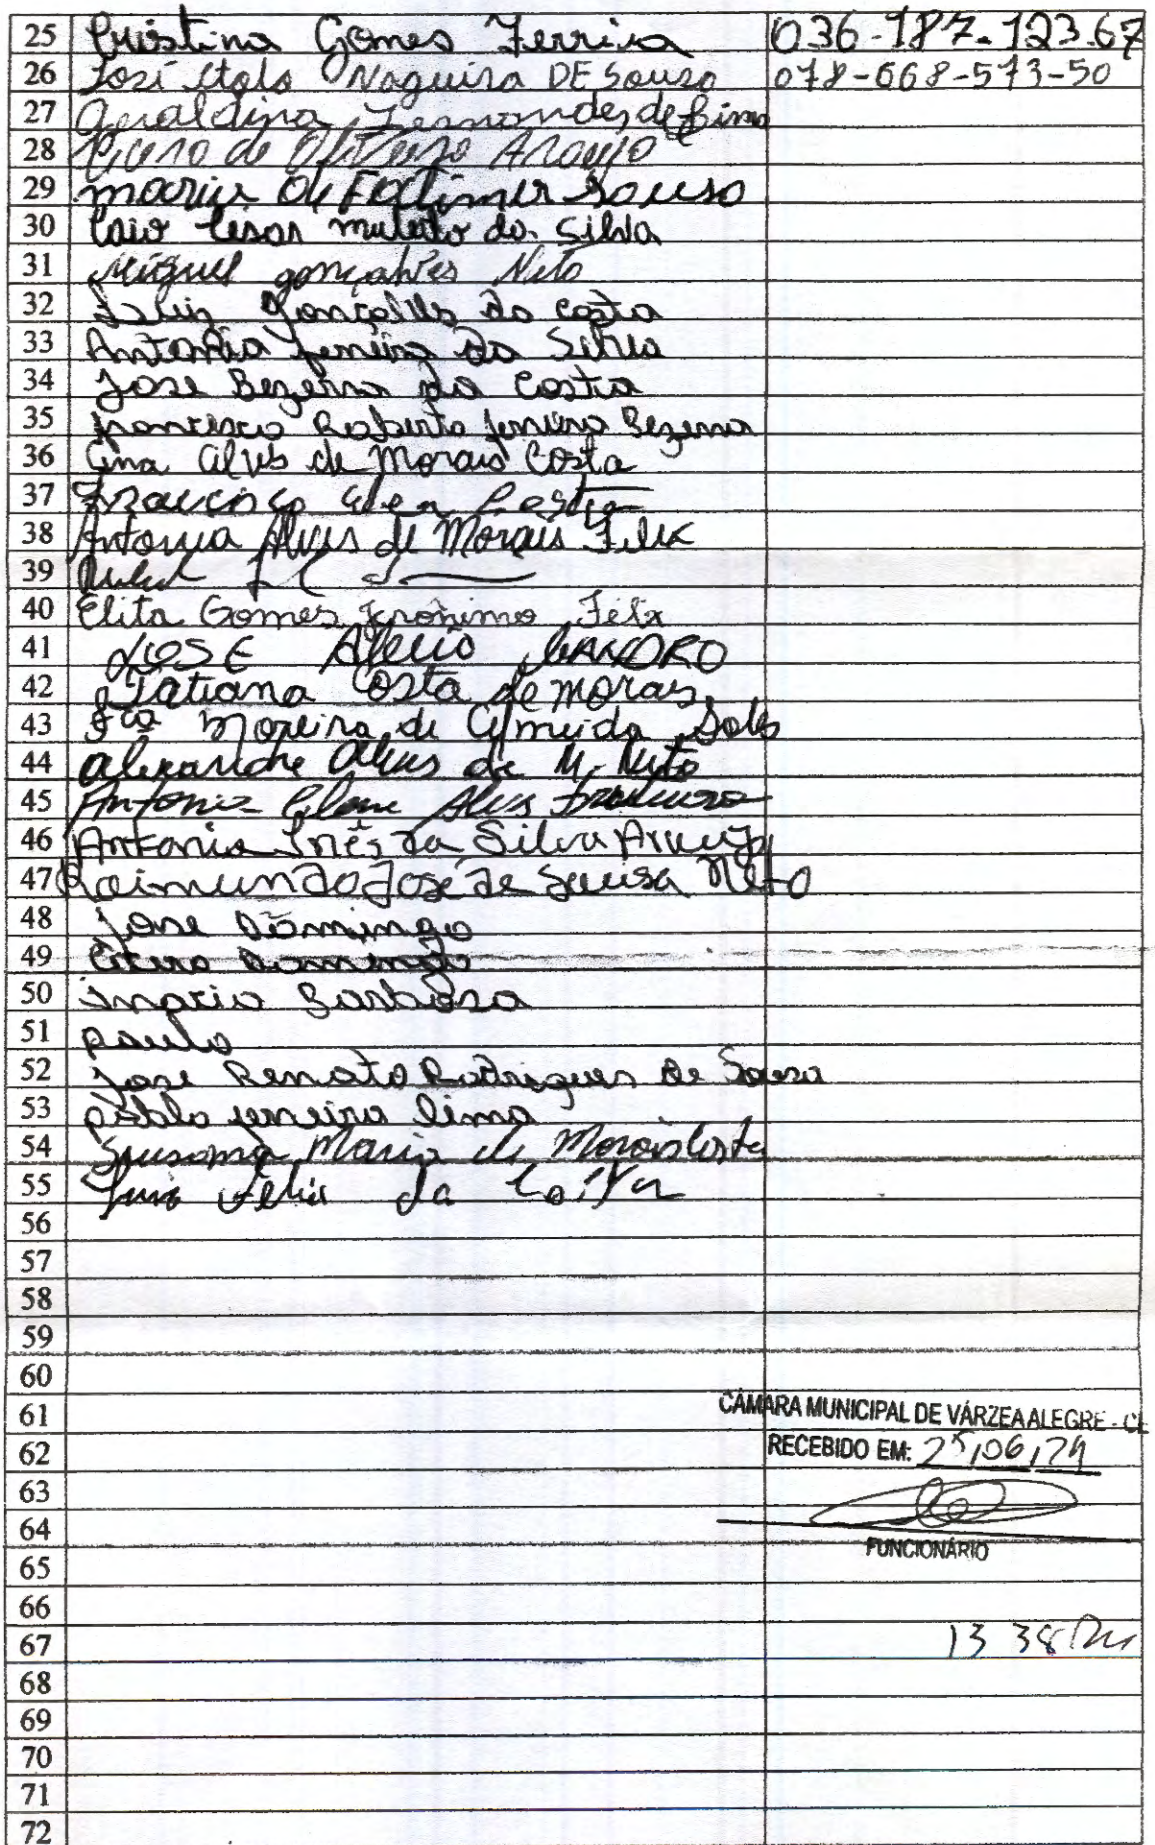 25 Cristina Gomes Ferreira 036-187-123.67
26 José Italo Nogueira DE Souza 078-668-573-50
27 Geraldina Fernandes de Lima
28 Cicero de Oliveira Araujo
29 maria de Fatima Sousa
30 Caio Cesar mulato da Silva
31 Miguel gonçalves Neto
32 Luiz Gonçalves da Costa
33 Antonia ferreira da Silva
34 Jose Bezerra da Costa
35 francisco Roberto ferreira Bezerra
36 Ana Alves de Morais Costa
37 Francisco
38 Antonia Alves de Morais Felix
39
40 Elita Gomes Jeronimo Felix
41 JOSE
42 Tatiana Costa de morais
43 Fca Moreira de Almeida Sales
44 alexandre Alves de M. Neto
45 Antonia Alves
46 Antonia Inês da Silva Araujo
47 Raimundo José de Sousa Neto
48 jose Domingo
49 Cicero Domingo
50 inacio Barbosa
51 Paulo
52 jose Renato Rodrigues de Sousa
53 pablo ferreira lima
54 Susana Maria de Morais Costa
55 Luis Felix da Costa
56
57
58
59
60
61 CÂMARA MUNICIPAL DE VÁRZEA ALEGRE - CE
62 RECEBIDO EM: 25/06/24
63
64
FUNCIONÁRIO
65
66
67 13 38
68
69
70
71
72